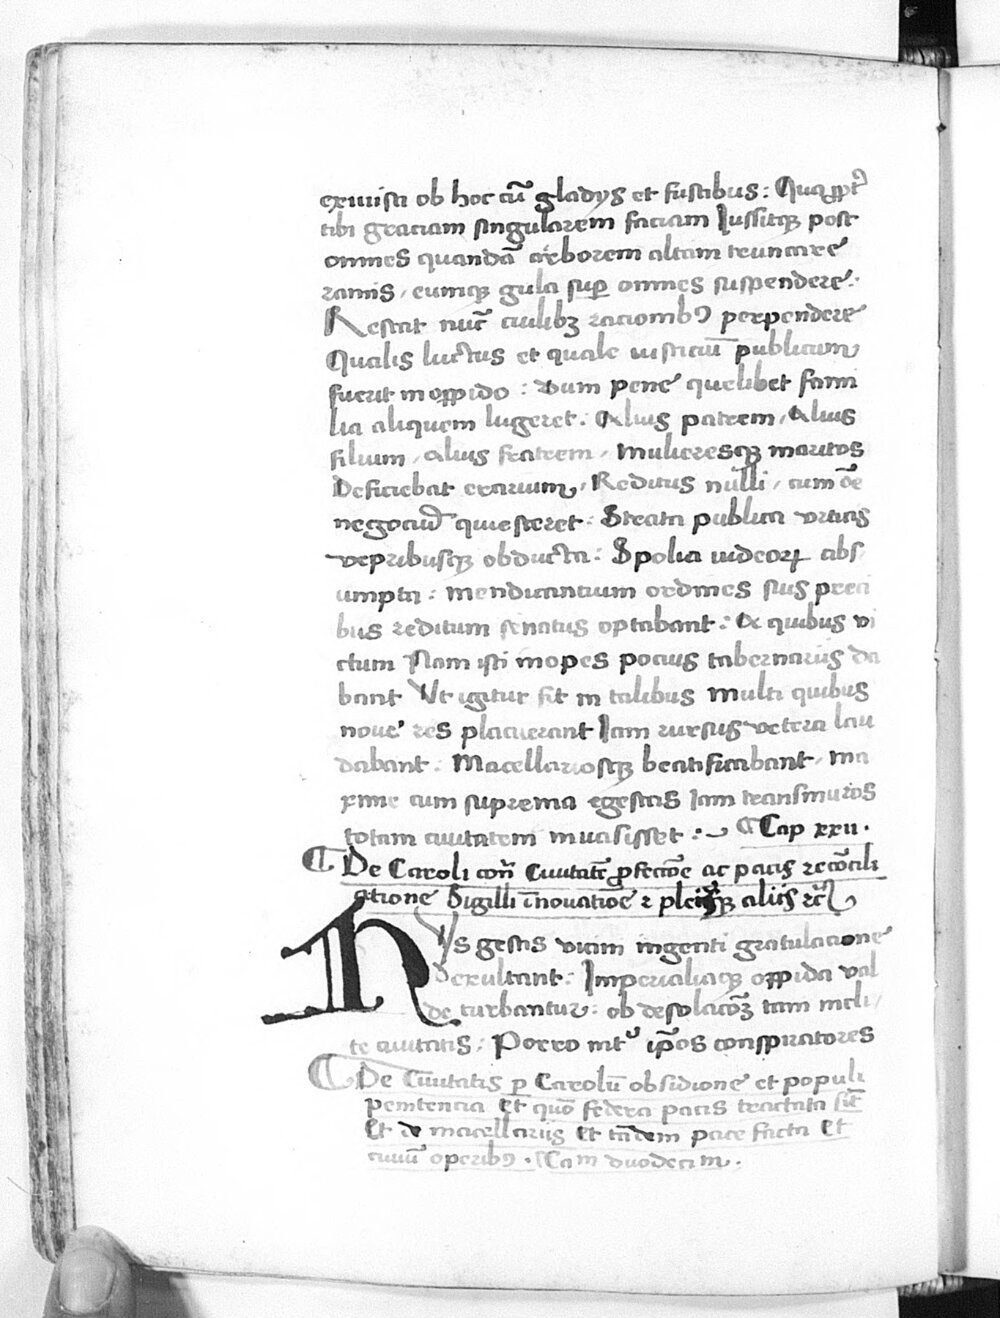 existi ob hoc cũ gladys et fustibus : Quapp̃t
tibi graciam singularem faciam Iussitqꝫ post
omnes quandã arborem altam truncare
ramis , eumqꝫ gula suꝑ omnes suspendere .
Restat nũc ciuilibꝫ racionibꝰ perpendere
Qualis luctus et quale iusticiũ publicum
fuerit in oppido : dum pene quelibet fami
lia aliquem lugeret . Alius patrem , Alius
filium , alius fratrem , Mulieresqꝫ maritos
Deficiebat erarium , Reditus nulli , cum õe
negociũ quiesceret . Strata publica vrticis
vepribusqꝫ obducta : Spolia iudeoꝝ abs
umpta : Mendicantium ordines suis preci
bus reditum senatus optabant : A quibus vi
ctum Nam isti inopes pocius tabernariis da
bant Vt igitur fit in talibus multi quibus
noue res placuerant Iam rursus vetera lau
dabant : Macellariosqꝫ beatificabant , ma
xime cum suprema egestas Iam transmuros
totam ciuitatem inuasisset : ⁓ ¶ Cap xxii .
¶ De Caroli cõñ Ciuitatẽ ꝓfectiõe ac pacis recõcili
atione Sigilli ĩnouatiõe ⁊ pleiisqꝫ aliis ⁊c̃
Hys gestis vicini ingenti gratulacione
exultant : Imperialiaqꝫ oppida val
de turbantur : ob desolacõꝫ tam incli
te ciuitatis : Porro intꝰ ip̃os conspiratores
¶ De Ciuitatis ꝑ Carolũ obsidione et populi
penitencia Et quõ federa pacis tractata sĩt
Et de macellariis Et tãdem pace facta Et
ciuiũ operibꝰ . Cam duodecim .